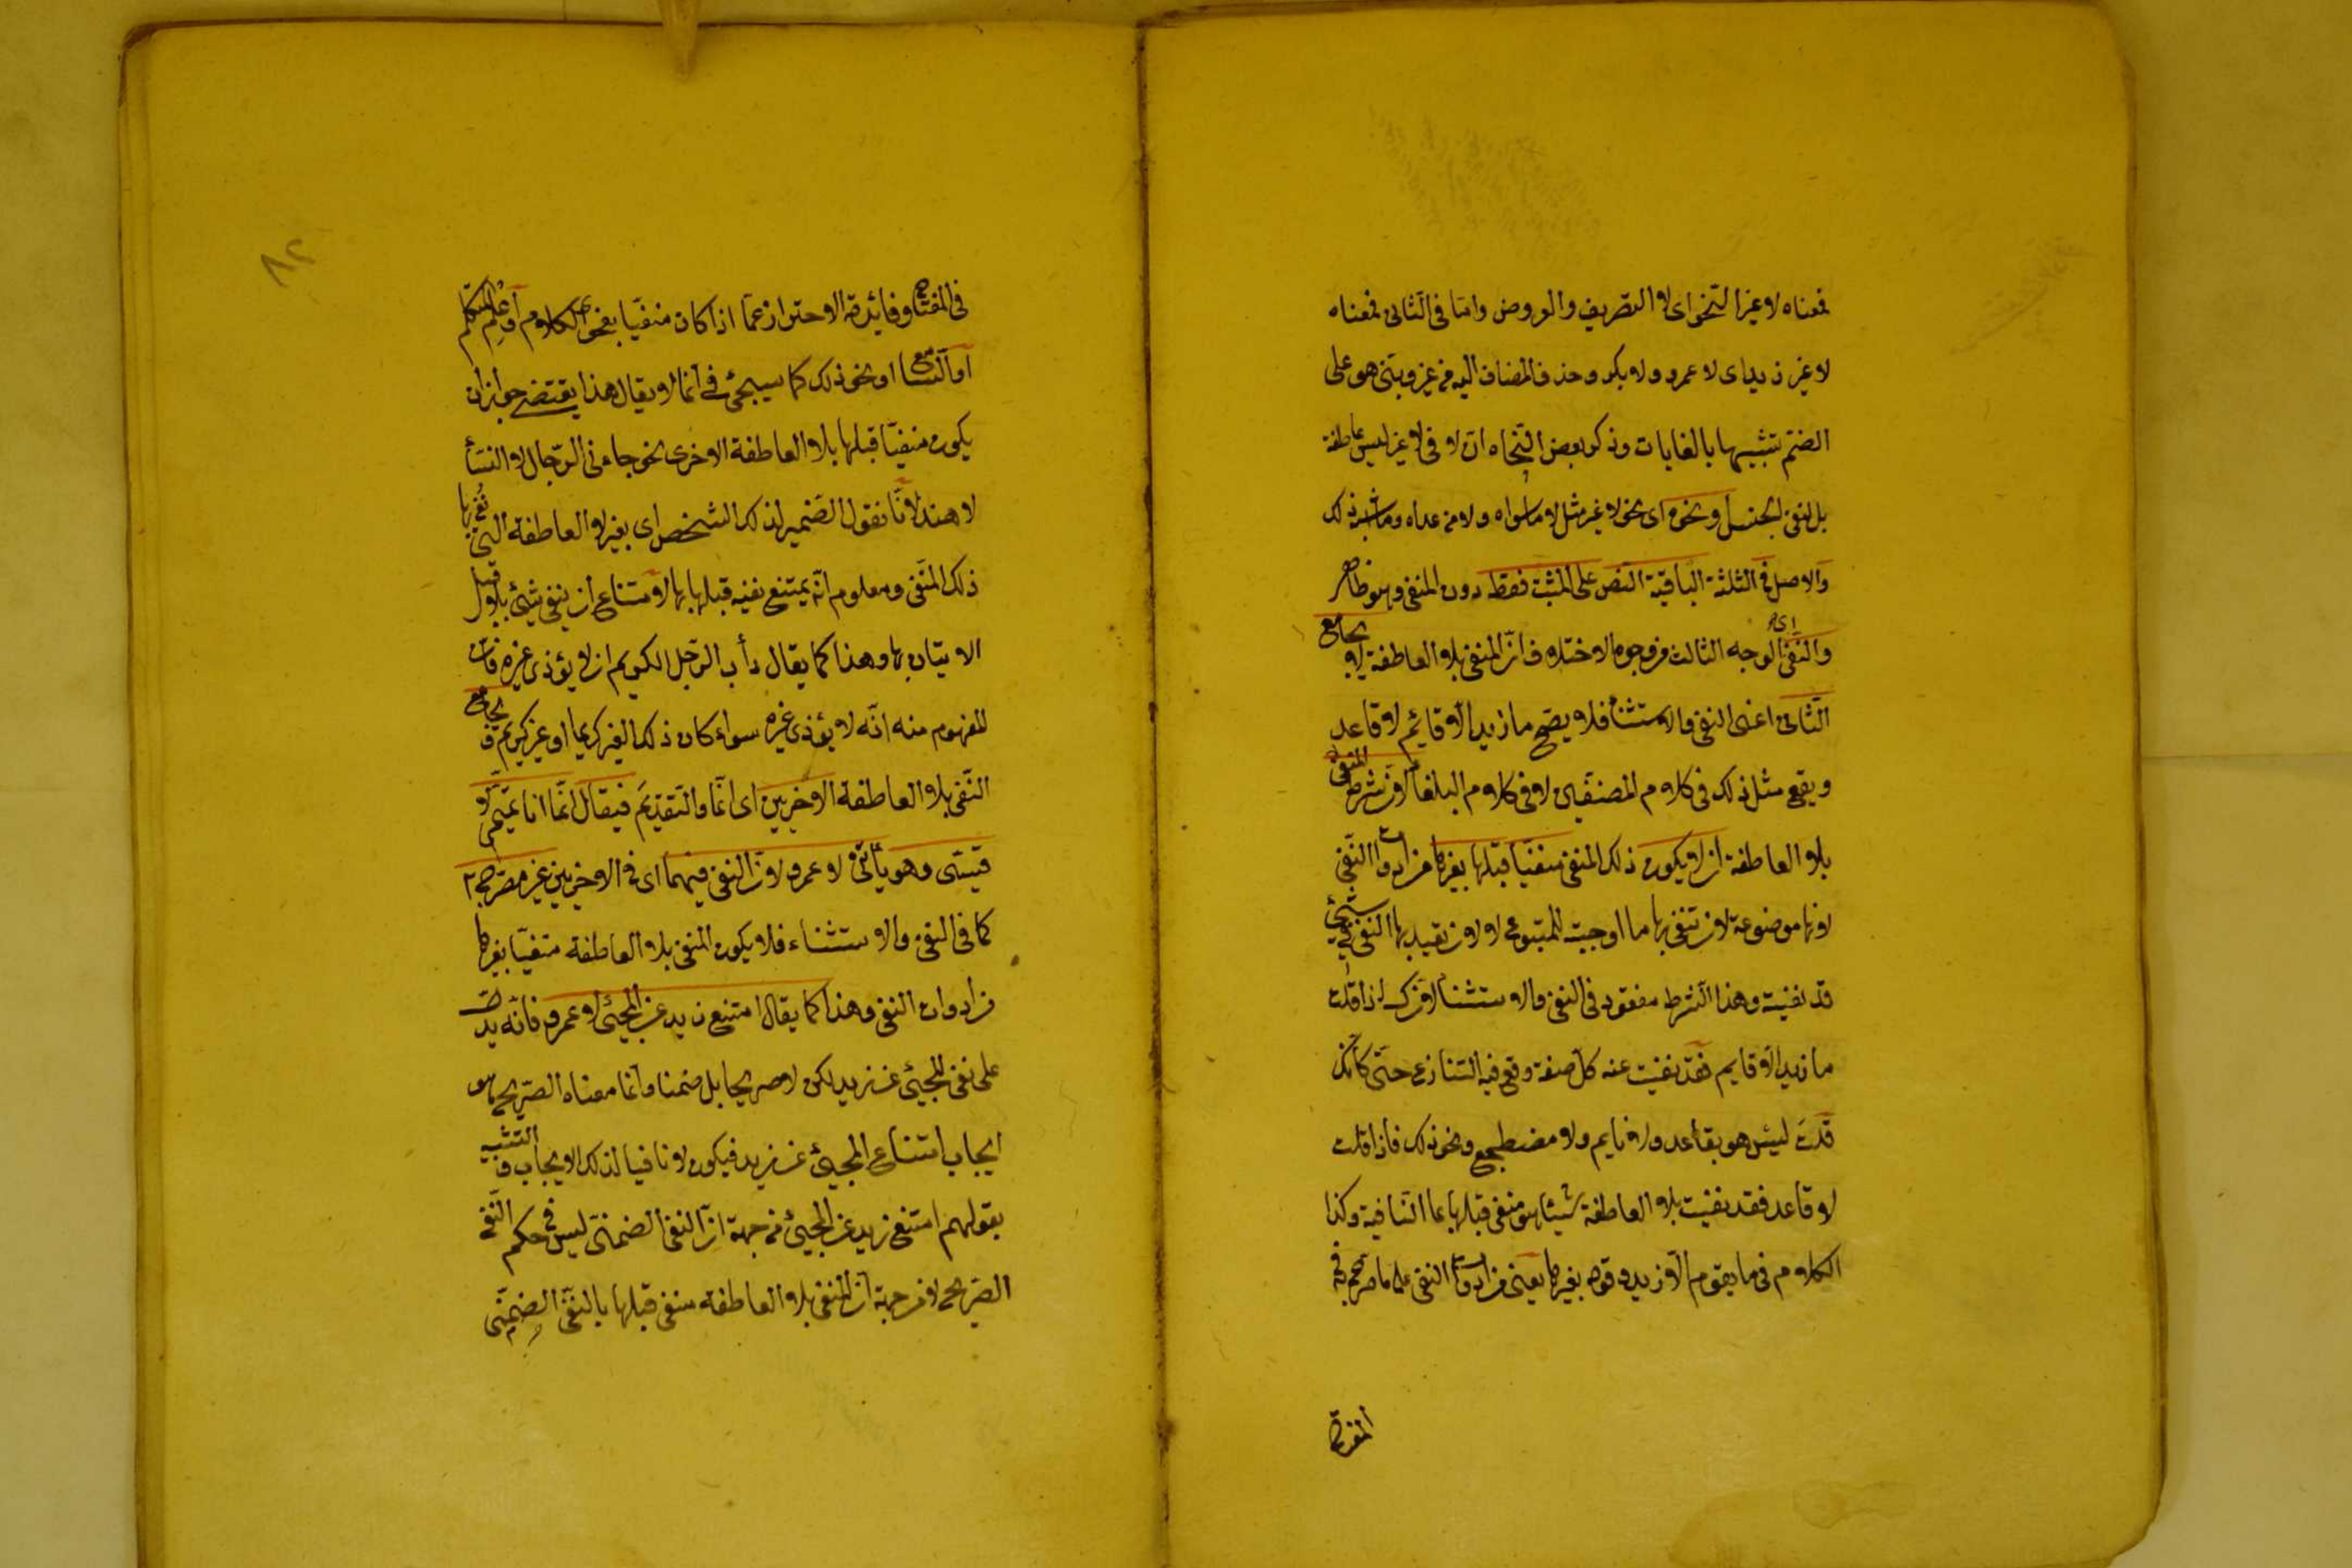 فمعناه لا غير النحو اى لا التصريف والعروض واما فى الثانى فمعناه
لا غير زيد اى لا عمرو ولا بكر وحذف المضاف اليه من غير وبنى هو على
الضم تشبيها بالغايات وذكر بعض النحاه ان لا فى لا غير ليس عاطفة
بل لنفى الجنس او نحوه اى نحو لا غير مثل لا ما سواه ولا من عداه وما شبه ذلك
والاصل فى الثلثة الباقية النص على المثبت فقط دون المنفى وهو ظاهر
والنفى اى الوجه الثالث من وجوه الاختلاف ان المنفى بلا العاطفة لا يجامع
الثانى اعنى النفى والاستثناء فلا يصح ما زيد الا قائم لا قاعد
ويقع مثل ذلك فى كلام المصنفين لا فى كلام البلغاء لان شرط المنفى
بلا العاطفة ان لا يكون ذلك المنفى منفيا قبلها بغيرها من ادوات النفى
لانها موضوعة لان تنفى بها ما اوجبته للمتبوع لا لان تعيد بها النفى فى شئ
قد نفيته وهذا الشرط مفقود فى النفى والاستثناء لانك اذا قلت
ما زيد الا قايم فقد نفيت عنه كل صفة وقع فيه التنازع حتى كانك
قلت ليس هو بقاعد ولا نايم ولا مضطجع ونحو ذلك فاذا قلت
لا قاعد فقد نفيت بلا العاطفة شيئا هو منفى قبلها بما النافية وكذا
الكلام فى ما يقوم الا زيد وقوله بغيرها يعنى من ادوات النفى على ما صرح به فى
المفتاح
٨٢
فى المفتاح وفائدته الاحتراز عما اذا كان منفيا بفحوى الكلام او علم المتكلم
او السامع او نحو ذلك كما سيجئ فى انما لا يقال هذا يقتضى جواز ان
يكون منفيا قبلها بلا العاطفة الاخرى نحو جاءنى الرجال لا النساء
لا هند لانا نقول الضمير لذلك الشخص اى بغير لا العاطفة التى نفى بها
ذلك المنفى ومعلوم انه يمتنع نفيه قبلها بها لامتناع ان ينفى شئ بلا قبل
الاتيان بها وهذا كما يقال دأب الرجل الكريم ان لا يؤذى غيره فان
المفهوم منه انه لا يؤذى غيره سواء كان ذلك الغير كريما او غير كريم ويجامع
النفى بلا العاطفة الاخيرين اى انما والتقديم فيقال انما انا تميمى لا
قيسى وهو يأتينى لا عمرو لان النفى فيهما اى فى الاخيرين غير مصرح به
كما فى النفى والاستثناء فلا يكون المنفى بلا العاطفة منفيا بغيرها
من ادوات النفى وهذا كما يقال امتنع زيد عن المجئ لا عمرو فانه يدل
على نفى المجئ عن زيد لكن لا صريحا بل ضمنا وانما معناه الصريح هو
ايجاب امتناع المجئ عن زيد فيكون لا نافيا لذلك الايجاب والتشبيه
بقولهم امتنع زيد عن المجئ من جهة ان النفى الضمنى ليس فى حكم النفى
الصريح لا من جهة ان المنفى بلا العاطفة منفى قبلها بالنفى الضمنى